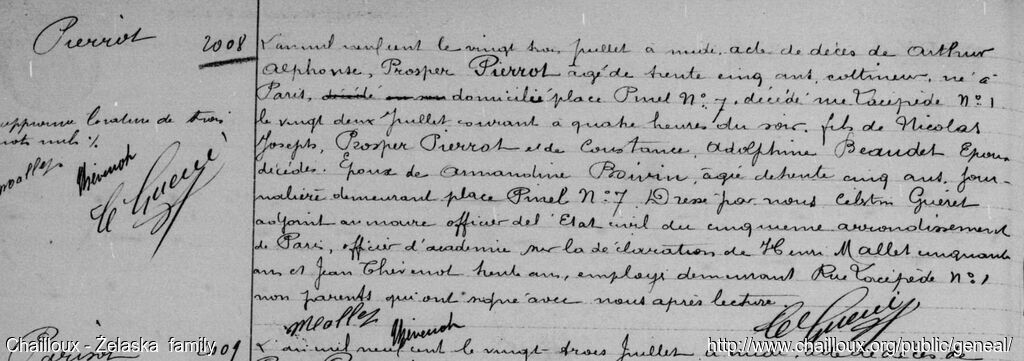 Pierrot
2008
L'an mil neuf cent le vingt trois Juillet à midi, acte de décès de Arthur
Alphonse, Prosper Pierrot âgé de trente cinq ans, coltineur, né à
Paris, décédé domicilié place Pinel N° 7, décédé rue Lacépède N° 1
le vingt deux Juillet courant à quatre heures du soir, fils de Nicolas
Joseph, Prosper Pierrot et de Constance, Adolphine Beaudet Epoux
décédés. Epoux de Armandine Boivin, âgée de trente cinq ans, Jour-
nalière demeurant place Pinel N° 7. Dressé par nous Célestin Guéret
adjoint au maire officier de l'Etat civil du cinquième arrondissement
de Paris, officier d'académie sur la déclaration de Henri Mallet cinquante
ans et Jean Thévenot trente ans, employés demeurant Rue Lacépède N° 1
non parents qui ont signé avec nous après lecture.
approuvé la rature de trois
mots nuls ./.
Mallet
Thévenot
C Guéret
Mallet
Thévenot
C Guéret
Parisot
2009
L'an mil neuf cent le vingt trois Juillet à
Chailloux - Żelaska family
http://chailloux.org/public/geneal/